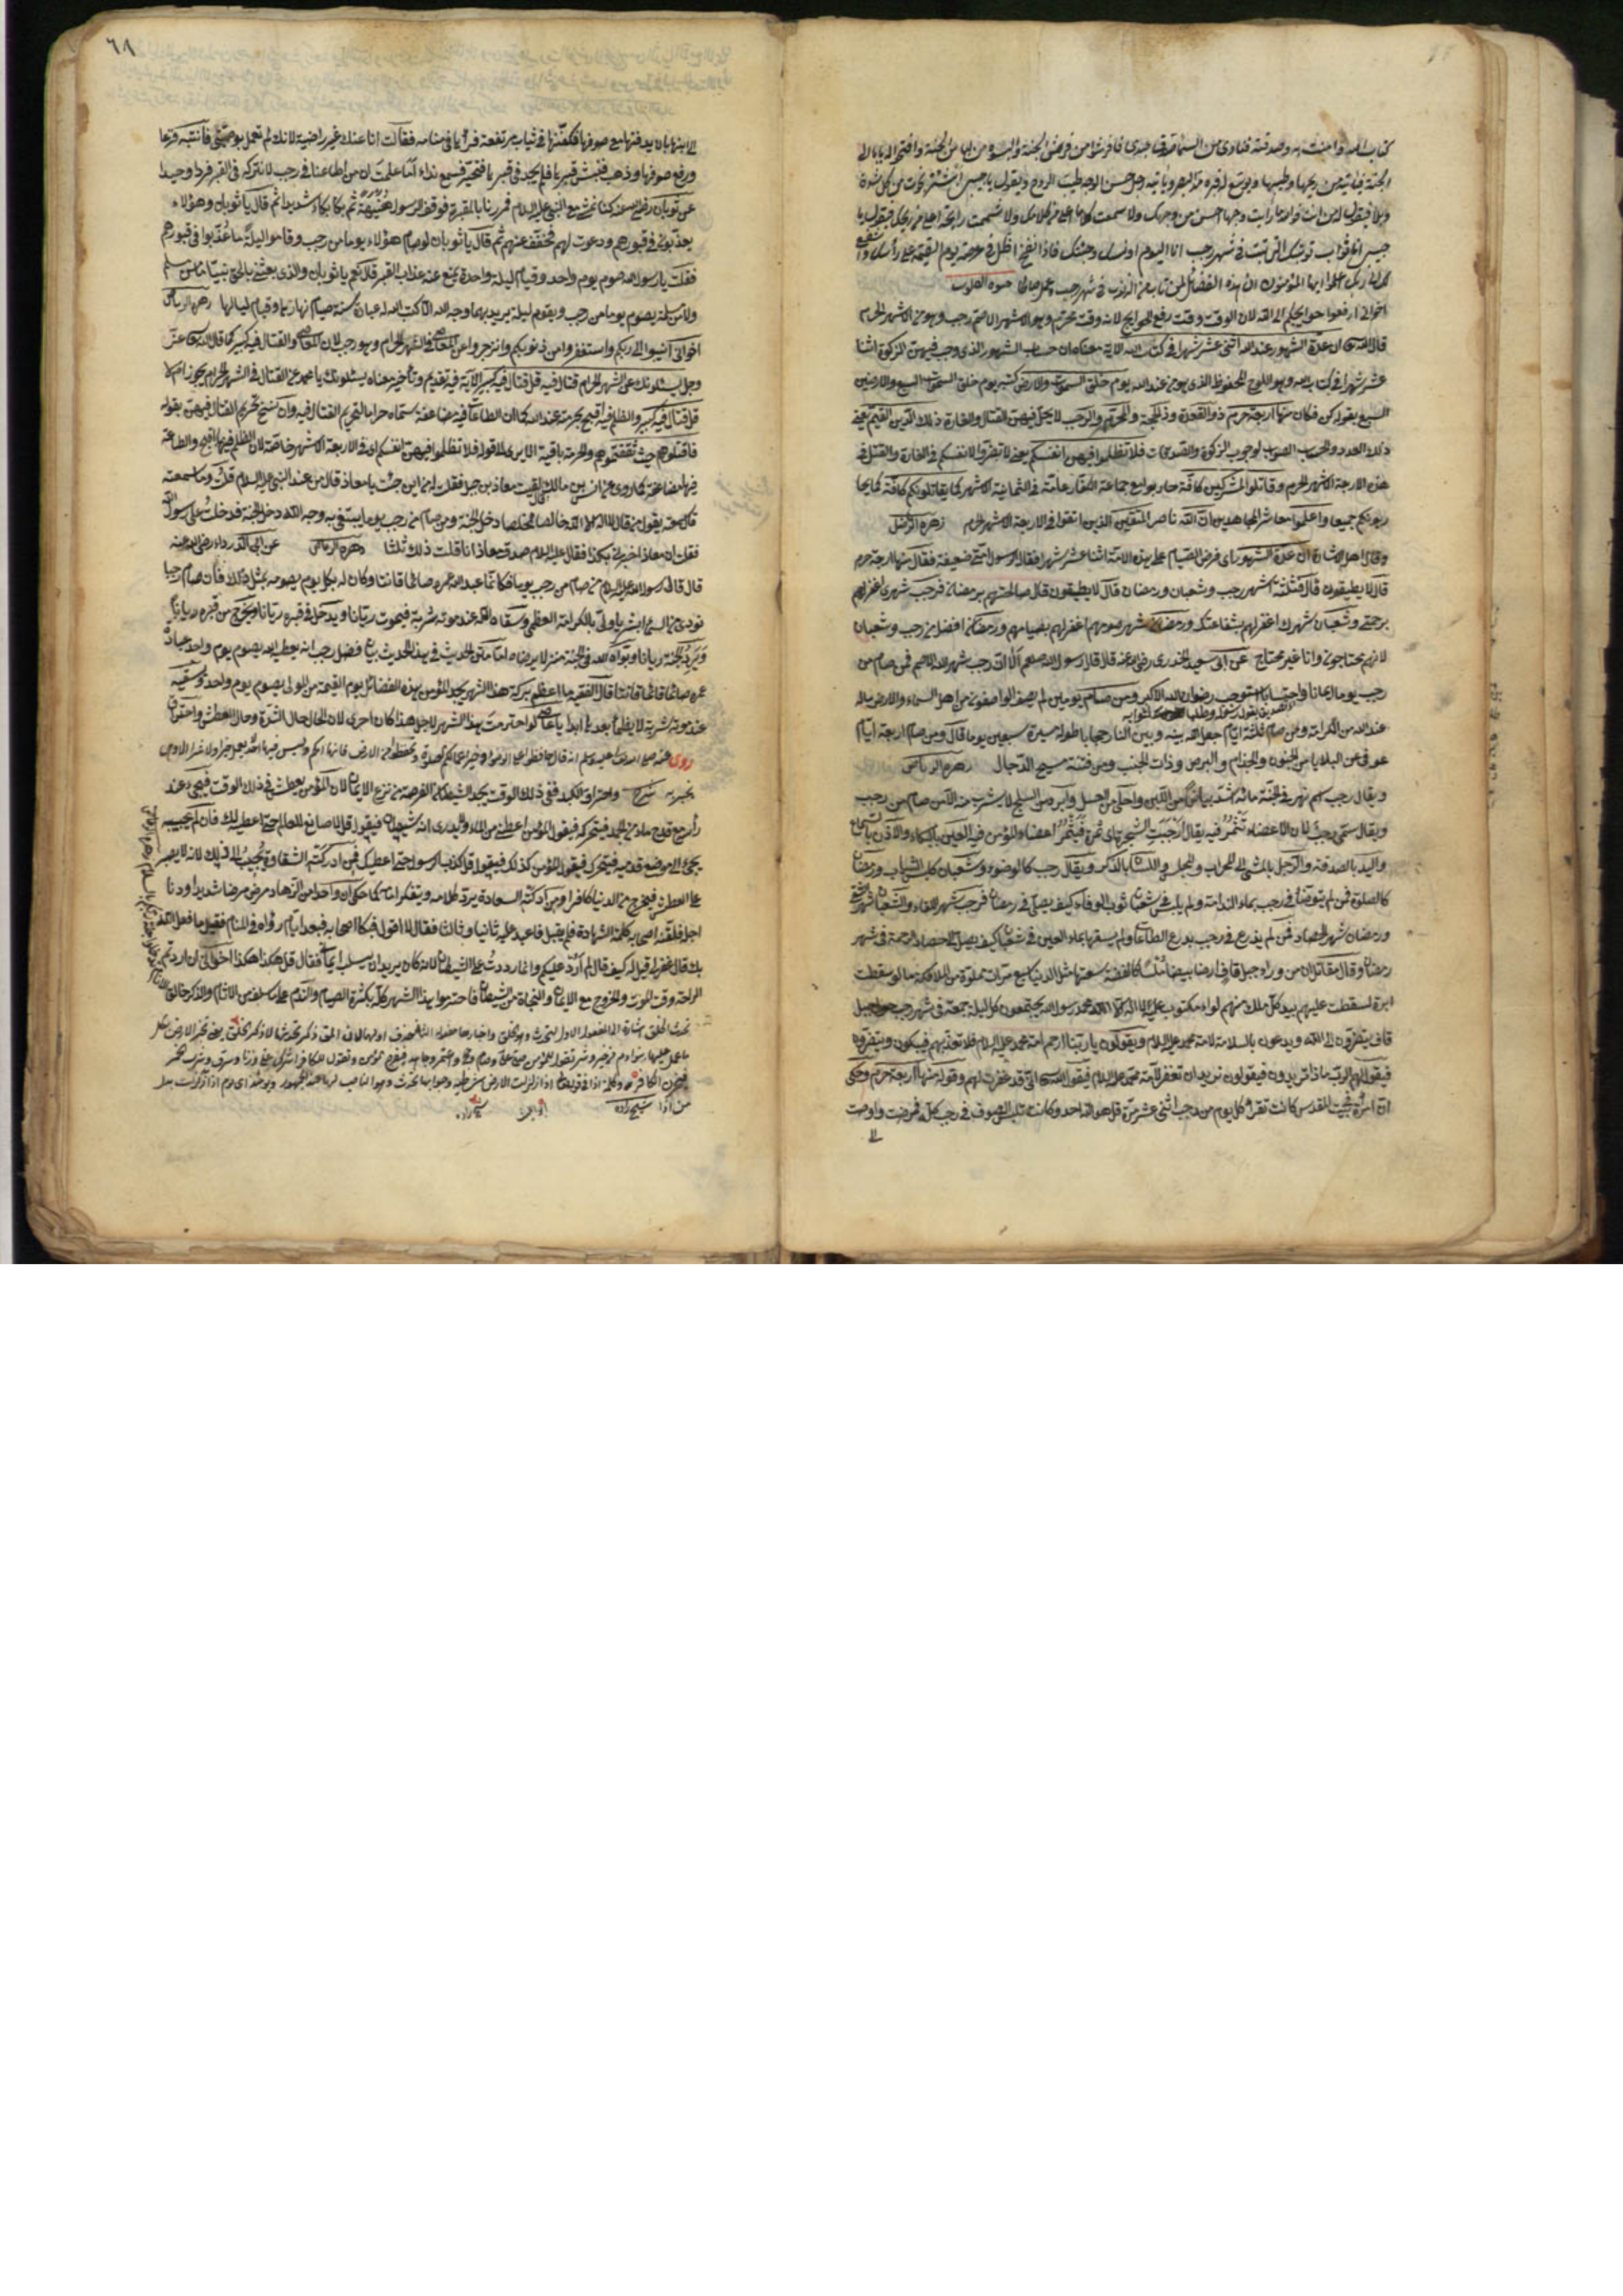 كتاب الله وامنت به وصدقته فنادى من السماء صدق عبدى فافرشوا من فرش الجنة والبسوه من لباس الجنة وافتحوا له بابا الى
الجنة فيأتيه من ريحها وطيبها ويوسع له قبره مد البصر ويأتيه رجل حسن الوجه طيب الروح ويقول يا حبيبى ابشر نجوت من كل شدة
فيقول له من انت فوالله ما رأيت وجها احسن من وجهك ولا سمعت كلاما احلى من كلامك ولا شممت رايحة اطيب من ريحك فيقول يا
حبيبى انا ثواب توبتك التى تبت فى شهر رجب انا اليوم اونسك وحشتك فاذا نفخ اظل فى عرصة يوم القيمة على رأسك واشفع
لك الى ربك اعلموا ايها المؤمنون ان هذه الفضائل لمن تاب من الذنوب فى شهر رجب وعمل صالحا حيوة القلوب
اخوانى ارفعوا حوايجكم الى الله لان الوقت وقت رفع الحوايج لانه وقت محترم وهو الاشهر الاصم رجب وهو من الاشهر الحرم
قال الله تعالى ان عدة الشهور عند الله اثنى عشر شهرا فى كتاب الله الاية معناه ان حساب الشهور الذى وجب فيهن الزكوة اثنا
عشر شهرا فى كتاب الله وهو اللوح المحفوظ الذى هو من عند الله يوم خلق السموات والارض كتبه يوم خلق السموات السبع والارضين
السبع بقوله كن فكان منها اربعة حرم ذو القعدة وذو الحجة والمحرم والرجب لا يحل فيهن القتال والغارة ذلك الدين القيم يعنى
ذلك العدد والحساب الصواب لوجوب الزكوة والصدقات فلا تظلموا فيهن انفسكم يعنى لا تضروا لانفسكم فى الغارة والقتل فى
هذه الاربعة الاشهر الحرم وقاتلوا المشركين كافة حاربوا مع جماعة الكفار عامة فى الثمانية الاشهر كما يقاتلونكم كافة كما يحا
ربونكم جميعا واعلموا معاشر المجاهدين ان الله ناصر المتقين الذين اتقوا فى الاربعة الاشهر الحرم زهرة الرياض
وقال اهل الاشارة ان عدة الشهور اى فرض الصيام على هذه الامة اثنا عشر شهرا فقال الرسول امتى ضعيفة فقال منها اربعة حرم
قال لا يطيقون قال فثلثة اشهر رجب وشعبان ورمضان قال لا يطيقون قال صالحتهم برمضان فرجب شهرى اغفر لهم
برحمتى وشعبان شهرك اغفر لهم بشفاعتك ورمضان شهر صومهم اغفر لهم بصيامهم ورمضان افضل من رجب وشعبان
لانهم يحتاجون وانا غير محتاج عن ابى سعيد الخدرى رضى الله عنه قال قال رسول الله صلعم الا ان رجب شهر الله الاصم فمن صام من
رجب يوما ايمانا واحتسابا استوجب رضوان الله الاكبر ومن صام يومين لم يصف الواصفون من اهل السماء والارض ماله
عند الله من الكرامة ومن صام ثلثة ايام جعل الله بينه وبين النار حجابا طوله مسيرة سبعين يوما قال ومن صام اربعة ايام
عوفى من البلايا من الجنون والجذام والبرص وذات الجنب ومن فتنة مسيح الدجال زهرة الرياض
ويقال رجب اسم نهر فى الجنة مائه اشد بياضا من اللبن واحلى من العسل وابرد من الثلج لا يشرب منه الا من صام من رجب
ويقال سمى رجب لان الاعضاء تثمر فيه يقال ارجبت الشجر اى ثمرة فيثمر اعضاء المؤمن فيه العين بالبكاء والاذن بالسماع
واليد بالصدقة والرجل بالمشى الى المحراب والمجلس واللسان بالذكر ويقال رجب كالوضوء وشعبان كلبس الثياب ورمضان
كالصلوة فمن لم يتوضأ فى رجب بماء الندامة ولم يلبس فى شعبان ثوب الوفاء كيف يصلى فى رمضان فرجب شهر القاء وشعبان شهر السقى
ورمضان شهر الحصاد فمن لم يزرع فى رجب بذرع الطاعات ولم يسقها بماء العين فى شعبان كيف يصل الى حصاد الرحمة فى شهر
رمضان وقال مقاتل ان من وراء جبل قاف ارضا بيضاء ملساء كالفضة سعتها مثل الدنيا سبع مرات مملوة من الملائكة مالو سقطت
ابرة لسقطت عليهم بيد كل ملك منهم لواء مكتوب عليه لا اله الا الله محمد رسول الله يجتمعون كل ليلة جمعة فى شهر رجب حول جبل
قاف يتضرعون الى الله ويدعون بالسلامة لامة محمد عليه السلام ويقولون يا ربنا ارحم امة محمد عليه السلام فلا تعذبهم فيبكون ويتضرعون
فيقول لهم الرب ماذا تريدون فيقولون نريد ان تغفر لامة محمد عليه السلام فيقول الله تعالى انى قد غفرت لهم وقوله منها اربعة حرم وحكى
ان امرأة فى بيت المقدس كانت تقرأ كل يوم من رجب اثنى عشر مرة قل هو الله احد وكانت تلبس الصوف فى رجب كله فمرضت واوصت
الى
٦٨
الى ابنها بان يدفنها مع صوفها فكفنها فى ثياب مرتفعة فرأيها فى منامه فقالت انا عنك غير راضية لانك لم تعمل بوصيتى فانتبه فزعا
ورفع صوفها وذهب فنبش قبرها فلم يجد فى قبرها فتحير فسمع نداء اما علمت ان من اطاعنا فى رجب لا نتركه فى القبر فردا وحيدا
عن ثوبان رضى الله عنه كنا نمشى مع النبى عليه السلام فمررنا بالمقبرة فوقف الرسول هنيهة ثم بكا بكاء شديدا ثم قال يا ثوبان وهؤلاء
يعذبون فى قبورهم ودعوت لهم فخفف عنهم ثم قال يا ثوبان لو صام هؤلاء يوما من رجب وقاموا ليلة ما عذبوا فى قبورهم
فقلت يا رسول الله صوم يوم واحد وقيام ليلة واحدة يمنع عنه عذاب القبر قال نعم يا ثوبان والذى بعثنى بالحق نبيا ما من مسلم
ولا مسلمة يصوم يوما من رجب ويقوم ليلة يريد بهما وجه الله الا كتب الله له عبادة سنة صيام نهارها وقيام لياليها زهرة الرياض
اخوانى انيبوا الى ربكم واستغفروا من ذنوبكم وانزجروا عن المعاصى فى الشهر الحرام وهو رجب لان المعاصى والقتال فيه كبير كما قال الله تعالى عز
وجل يسئلونك عن الشهر الحرام قتال فيه قل قتال فيه كبير الاية فيه تقديم وتأخير معناه يسئلونك يا محمد عن القتال فى الشهر الحرام يجوز ام لا
قل قتال فيه كبير والظلم فيه اقبح بحرمة عند الله كما ان الطاعات فيه مضاعفة سماه حراما لتحريم القتال فيه وان نسخ تحريم القتال فيهن بقوله
فاقتلوهم حيث ثقفتموهم والحرمة باقية الا يرى الى قوله فلا تظلموا فيهن انفسكم اى فى الاربعة الاشهر خاصة لان الظلم فيها اقبح والطاعة
فيها مضاعفة كما روى عن انس بن مالك قال لقيت معاذ بن جبل فقلت له من اين جئت يا معاذ قال من عند النبى عليه السلام قلت وما سمعته
قال سمعته يقول من قال لا اله الا الله خالصا مخلصا دخل الجنة ومن صام من رجب يوما يبتغى به وجه الله دخل الجنة فدخلت على رسول الله
فقلت ان معاذا اخبرنى بكذا فقال عليه السلام صدق معاذ انا قلت ذلك ثلثا زهرة الرياض عن ابى الدرداء رضى الله عنه
قال قال رسول الله عليه السلام من صام من رجب يوما فكانما عبد الله عمره صائما قانتا وكان له بكل يوم يصومه بمثل ذلك فان صام رجبا
نودى من السماء ابشر يا ولى بالكرامة العظمى وسقاه الله عند موته شربة فيموت ريانا ويدخل فى قبره ريانا ويخرج من قبره ريانا
ويرد الجنة ريانا وبوأه الله فى الجنة منزلا يرضاه
عند موته شربة لا يظمأ بعدها ابدا يا عاصى لو احترمت بهذا الشهر لاجل هذا كان احرى لان الحال حال الشدة وحال العطش واحتراق
روى عنه صلى الله تعالى عليه وسلم انه قال حافظوا على الوضوء وخير اعمالكم الصلوة وتحفظوا من الارض فانها امكم وليس فيها احد يعمل خيرا ولا شرا الا وهى
تخبر به شرح واحتراق الكبد ففى ذلك الوقت يجد الشيطان الفرصة من نزع الايمان لان المؤمن يعطش فى ذلك الوقت فيجئ عند
رأسه مع قدح ماء من الجمد فيتحركه فيقول المؤمن اعطنى من الماء ولا يدرى انه شيطان فيقول قل لا صانع للعالم حتى اعطيه لك فان لم يجيبه
يجئ الى موضع قدميه فيتحرك فيقول المؤمن كذلك فيقول قل كذب الرسول حتى اعطيك فمن ادركته الشقاوة يجيب الى ذلك لانه لا يصبر
على العطش فيخرج من الدنيا كافرا ومن ادركته السعادة يرد كلامه ويتفكر امامه كما حكى ان واحدا من الزهاد مرض مرضا شديدا ودنا
اجله فلقنه اصحابه كلمة الشهادة فلم يقبل فاعيد عليه ثانيا وثالثا فقال لا اقول فبكا اصحابه فبعد ايام رؤاه فى المنام فقيل ما فعل الله
بك قال غفر لى قيل له كيف قال لم ارد عليكم وانما رددت على الشيطان لانه كان يريد ان يسلب ايمانى فقال قل هكذا هكذا اخوانى ان اردتم
الراحة وقت الموت والخروج مع الايمان والنجاة من الشيطان فاحترموا بهذا الشهر كله بكثرة الصيام والندم على ما سلف من الاثام والذكر خالق
من اذا شيخ زاده